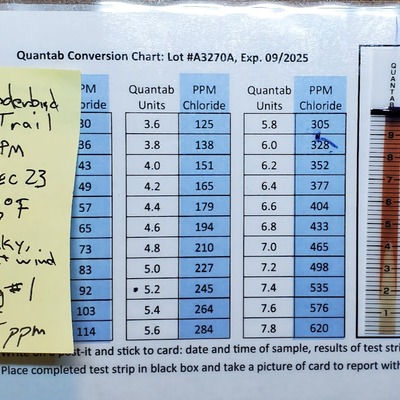 Quantab Conversion Chart: Lot #A3270A, Exp. 09/2025
derbird
Trail
PM
EC 23
°F
ky,
wind
#1
ppm
PM Quantab PPM Quantab PPM
loride Units Chloride Units Chloride
30 3.6 125 5.8 305
36 3.8 138 6.0 328
43 4.0 151 6.2 352
49 4.2 165 6.4 377
57 4.4 179 6.6 404
65 4.6 194 6.8 433
73 4.8 210 7.0 465
83 5.0 227 7.2 498
92 5.2 245 7.4 535
103 5.4 264 7.6 576
114 5.6 284 7.8 620
QUANTAB
9
8
7
6
5
4
3
2
1
on a post-it and stick to card: date and time of sample, results of test stri
Place completed test strip in black box and take a picture of card to report with